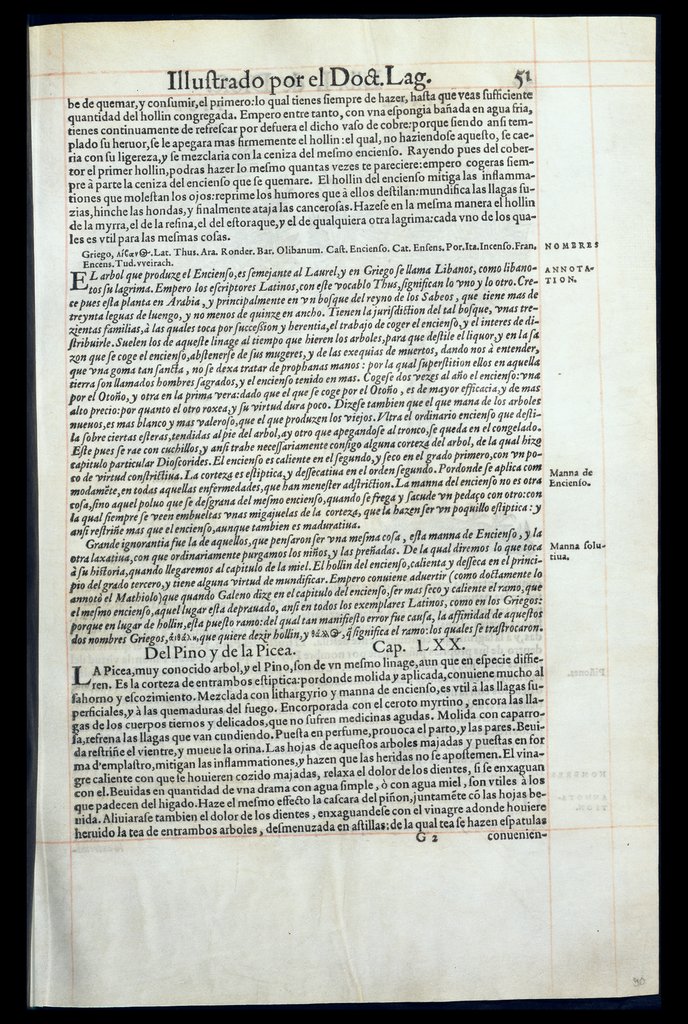 Illuſtrado por el Doct. Lag. 51
be de quemar, y conſumir, el primero: lo qual tienes ſiempre de hazer, haſta que veas ſufficiente
quantidad del hollin congregada. Empero entre tanto, con vna eſpongia bañada en agua fria,
tienes continuamente de refreſcar por defuera el dicho vaſo de cobre: porque ſiendo anſi tem-
plado ſu heruor, ſe le apegara mas firmemente el hollin: el qual, no haziendoſe aqueſto, ſe cae-
ria con ſu ligereza, y ſe mezclaria con la ceniza del meſmo encienſo. Rayendo pues del cober-
tor el primer hollin, podras hazer lo meſmo quantas vezes te pareciere: empero cogeras ſiem-
pre à parte la ceniza del encienſo que ſe quemare. El hollin del encienſo mitiga las inflamma-
tiones que moleſtan los ojos: reprime los humores que à ellos deſtilan: mundifica las llagas ſu-
zias, hinche las hondas, y finalmente ataja las canceroſas. Hazeſe en la meſma manera el hollin
de la myrra, el de la reſina, el del eſtoraque, y el de qualquiera otra lagrima: cada vno de los qua-
les es vtil para las meſmas coſas.
Griego, Lat. Thus. Ara. Ronder. Bar. Olibanum. Caſt. Encienſo. Cat. Enſens. Por. Ita. Incenſo. Fran,
NOMBRES
Encens. Tud. vveirach.
EL arbol que produze el Encienſo, es ſemejante al Laurel, y en Griego ſe llama Libanos, como libano-
ANNOTA-
TION.
tos ſu lagrima. Empero los eſcriptores Latinos, con eſte vocablo Thus, ſignifican lo vno y lo otro. Cre-
ce pues eſta planta en Arabia, y principalmente en vn boſque del reyno de los Sabeos, que tiene mas de
treynta leguas de luengo, y no menos de quinze en ancho. Tienen la juriſdiction del tal boſque, vnas tre-
zientas familias, à las quales toca por ſucceſsion y herentia, el trabajo de coger el encienſo, y el interes de di-
ſtribuirle. Suelen los de aqueſte linage al tiempo que hieren los arboles, para que deſtile el liquor, y en la ſa
zon que ſe coge el encienſo, abſtenerſe de ſus mugeres, y de las exequias de muertos, dando nos à entender,
que vna goma tan ſancta, no ſe dexa tratar de prophanas manos: por la qual ſuperſtition ellos en aquella
tierra ſon llamados hombres ſagrados, y el encienſo tenido en mas. Cogeſe dos vezes al año el encienſo: vna
por el Otoño, y otra en la prima vera: dado que el que ſe coge por el Otoño, es de mayor efficacia, y de mas
alto precio: por quanto el otro roxea, y ſu virtud dura poco. Dizeſe tambien que el que mana de los arboles
nueuos, es mas blanco y mas valeroſo, que el que produzen los viejos. Vltra el ordinario encienſo que deſti-
la ſobre ciertas eſteras, tendidas al pie del arbol, ay otro que apegandoſe al tronco, ſe queda en el congelado.
Eſte pues ſe rae con cuchillos, y anſi trahe neceſſariamente conſigo alguna corteza del arbol, de la qual hizo
capitulo particular Dioſcorides. El encienſo es caliente en el ſegundo, y ſeco en el grado primero, con vn po-
co de virtud conſtrictiua. La corteza es eſtiptica, y deſſecatiua en el orden ſegundo. Por donde ſe aplica com
modamẽte, en todas aquellas enfermedades, que han meneſter adſtriction. La manna del encienſo no es otra
Manna de
Encienſo.
coſa, ſino aquel poluo que ſe deſgrana del meſmo encienſo, quando ſe frega y ſacude vn pedaço con otro: con
la qual ſiempre ſe veen embueltas vnas migajuelas de la corteza, que la hazen ſer vn poquillo eſtiptica: y
anſi reſtriñe mas que el encienſo, aunque tambien es maduratiua.
Grande ignorantia fue la de aquellos, que penſaron ſer vna meſma coſa, eſta manna de Encienſo, y la
Manna ſolu-
tiua.
otra laxatiua, con que ordinariamente purgamos los niños, y las preñadas. De la qual diremos lo que toca
à ſu hiſtoria, quando llegaremos al capitulo de la miel. El hollin del encienſo, calienta y deſſeca en el princi-
pio del grado tercero, y tiene alguna virtud de mundificar. Empero conuiene aduertir (como doctamente lo
annotó el Mathiolo) que quando Galeno dize en el capitulo del encienſo, ſer mas ſeco y caliente el ramo, que
el meſmo encienſo, aquel lugar eſta deprauado, anſi en todos los exemplares Latinos, como en los Griegos:
porque en lugar de hollin, eſta pueſto ramo: del qual tan manifieſto error fue cauſa, la affinidad de aqueſtos
dos nombres Griegos, que quiere dezir hollin, y q̃ ſignifica el ramo: los quales ſe traſtrocaron.
Del Pino y de la Picea. Cap. LXX.
LA Picea, muy conocido arbol, y el Pino, ſon de vn meſmo linage, aun que en eſpecie diffie-
ren. Es la corteza de entrambos eſtiptica: por donde molida y aplicada, conuiene mucho al
ſahorno y eſcozimiento. Mezclada con lithargyrio y manna de encienſo, es vtil à las llagas ſu-
perficiales, y à las quemaduras del fuego. Encorporada con el ceroto myrtino, encora las lla-
gas de los cuerpos tiernos y delicados, que no ſufren medicinas agudas. Molida con caparro-
ſa, refrena las llagas que van cundiendo. Pueſta en perfume, prouoca el parto, y las pares. Beui-
da reſtriñe el vientre, y mueue la orina. Las hojas de aqueſtos arboles majadas y pueſtas en for
ma d'emplaſtro, mitigan las inflammationes, y hazen que las heridas no ſe apoſtemen. El vina-
gre caliente con que le houieren cozido majadas, relaxa el dolor de los dientes, ſi ſe enxaguan
con el. Beuidas en quantidad de vna drama con agua ſimple, ò con agua miel, ſon vtiles à los
que padecen del higado. Haze el meſmo effecto la caſcara del piñon, juntamẽte cõ las hojas be-
uida. Aliuiaraſe tambien el dolor de los dientes, enxaguandeſe con el vinagre adonde houiere
heruido la tea de entrambos arboles, deſmenuzada en aſtillas: de la qual tea ſe hazen eſpatulas
G 2 conuenien-
90